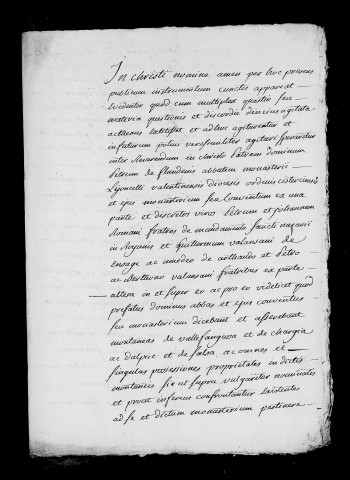 In christi nomine amen per hoc presens
publicum instrumentum cunctis appareat
evidenter quod cum multiplex questio seu
materia questionis et discordie diucius agitata
actenus extitisset et adhuc agitaretur et
in futurum potius versissimiliter agitari speraretur
inter Reverendum in christo Patrem dominum
Petrum de flandenis abbatem monasterii
Lyuncelli valentinensis diocesis ordinis cisterciensis
et ejus monasterium seu conventum ex una
parte et discretos viros Petrum et Johannem
Romani fratres de mandamento sancti nazarii
in Royanis et Guillermum valansani de
Euvage ac amedeo de arthaudo et Petro
ac Berthono valansani fratribus ex parte
altera in et super eo ac pro eo videlicet quod
prefatus dominus abbas et ejus conventus
seu monasterium dicebant et asserebant
montaneas de vallefanjouza et de changia
ac dalpie et de falsa ac omnes et
singulas possessiones proprietates in dictis
montaneis sic ut supra vulgariter nominatas
et prout inferius confrontantur existentes
ad se et dictum monasterium pertinere